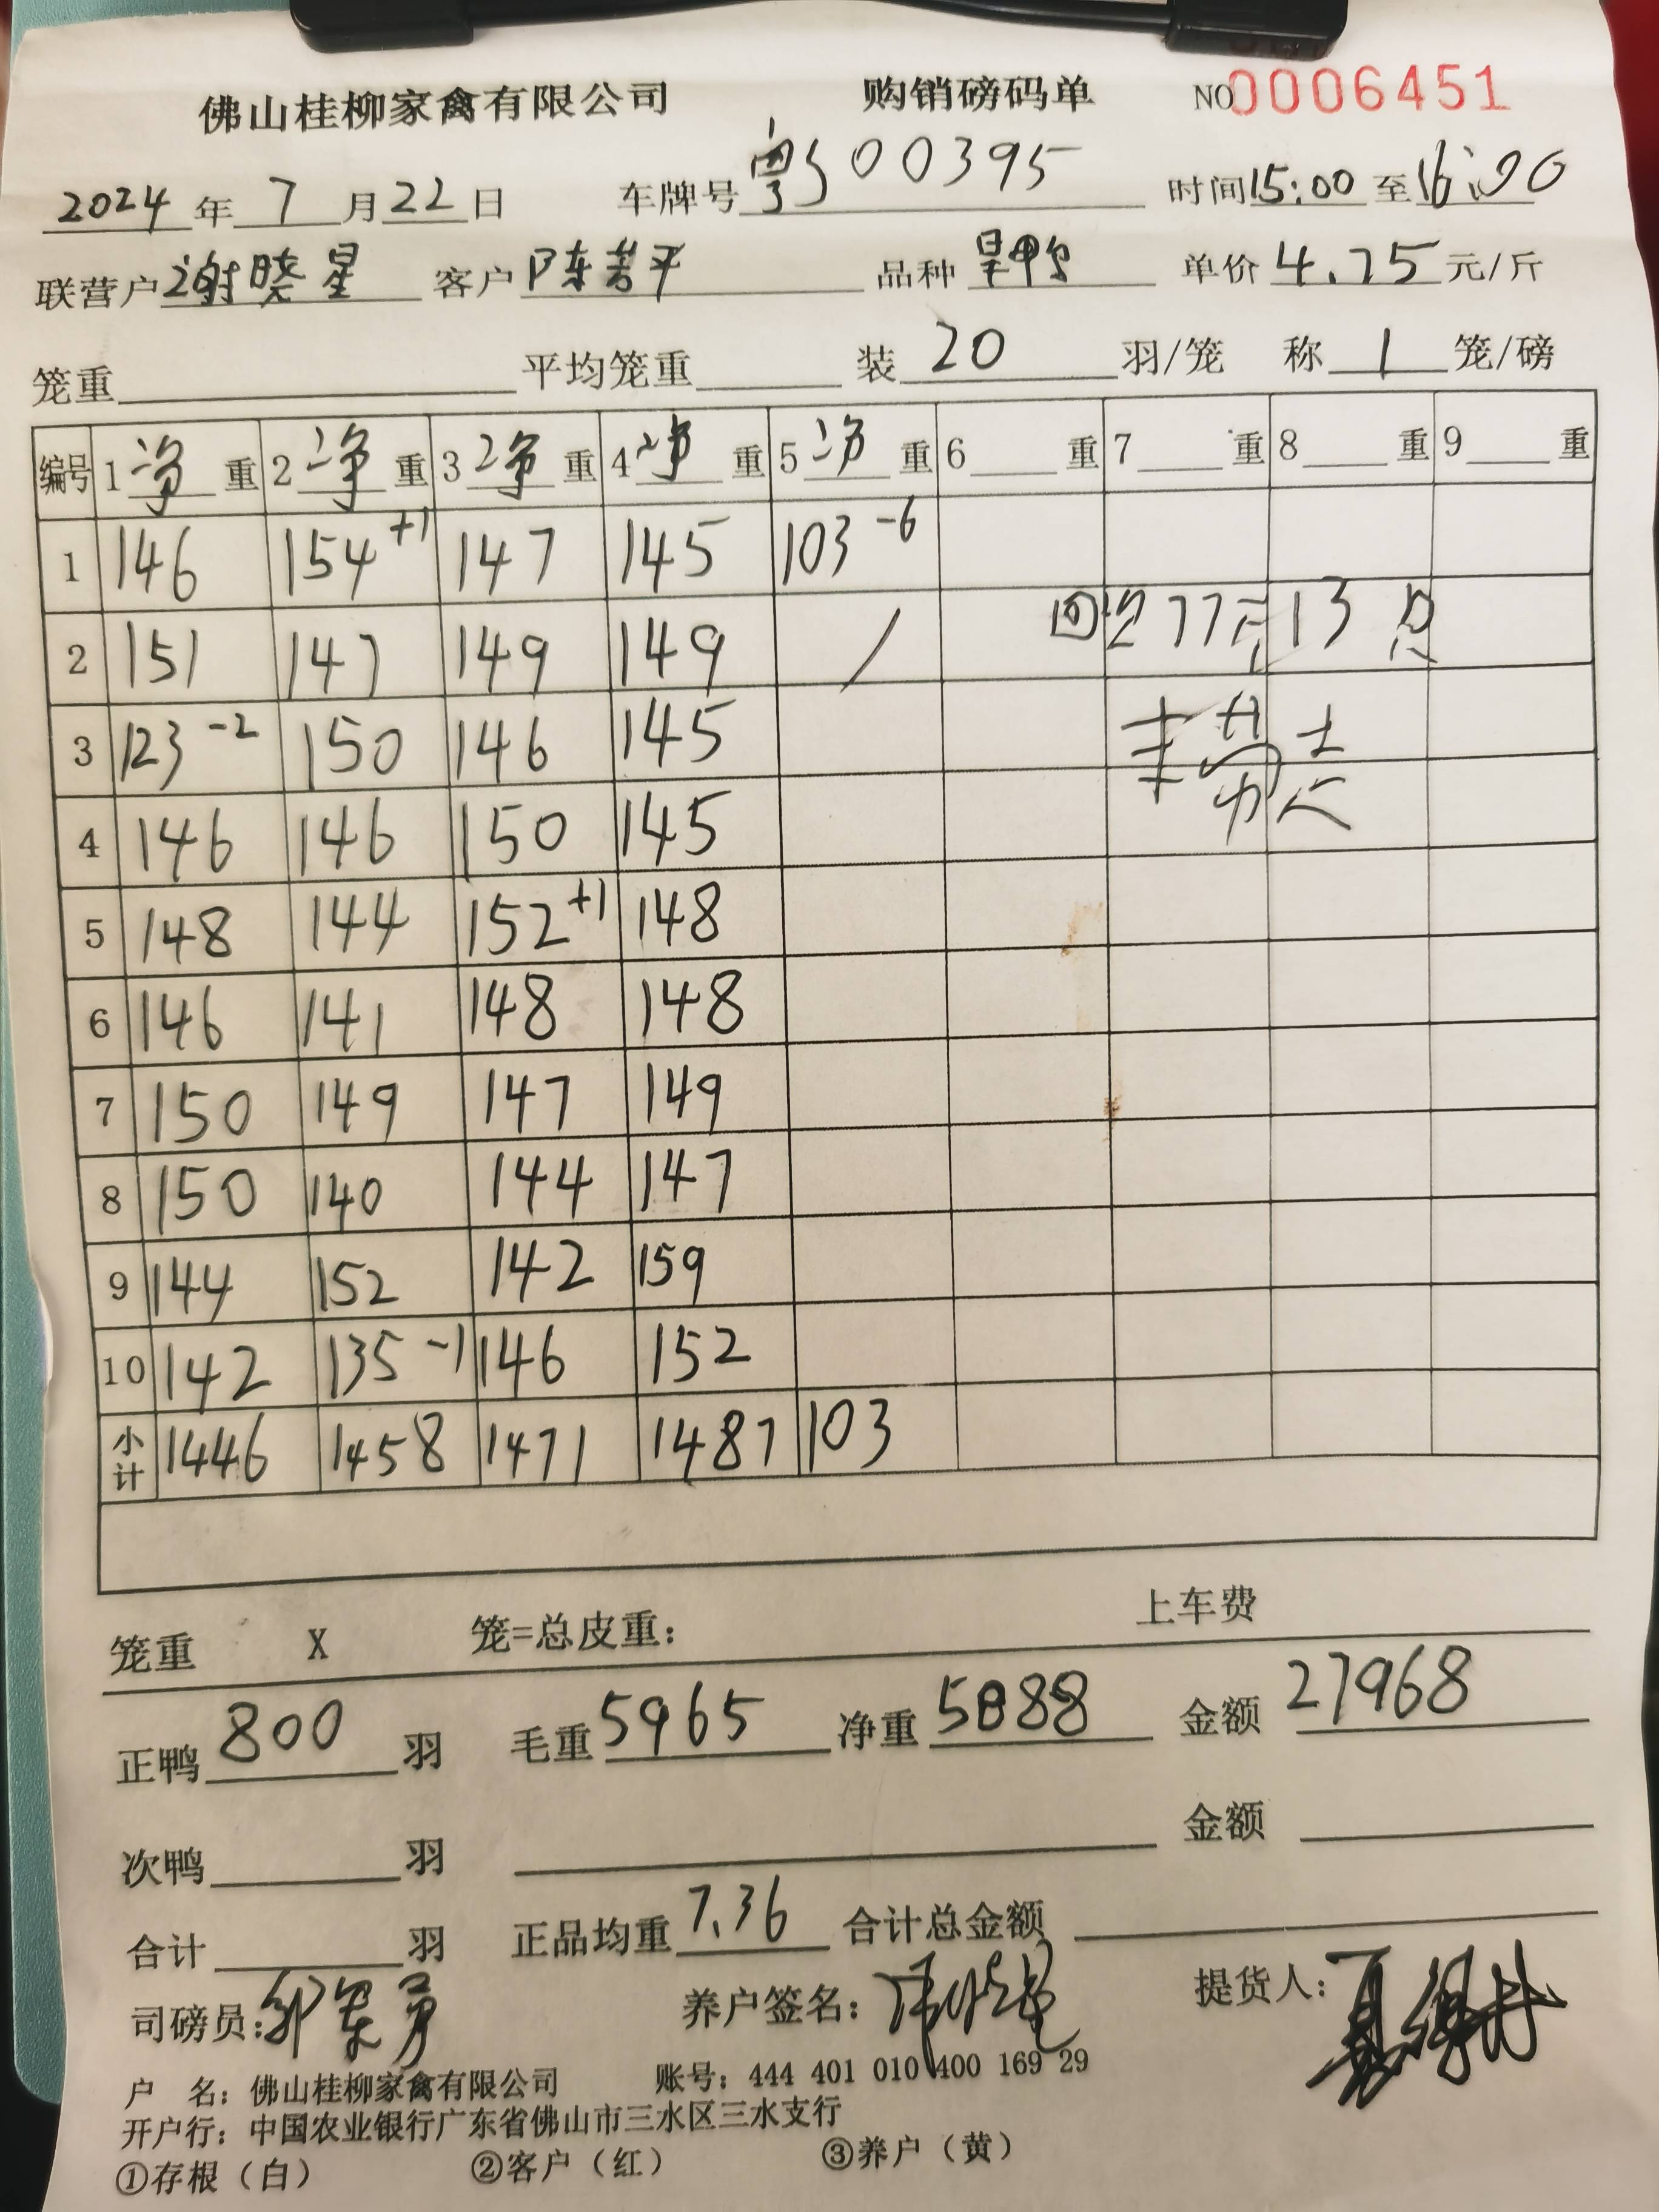 佛山桂柳家禽有限公司 购销磅码单 NO0006451
2024年7月22日 车牌号粤J00395 时间15:00至16:00
联营户谢晓星 客户陈芳平 品种旱鸭 单价4.75元/斤
笼重 平均笼重 装20羽/笼 称1笼/磅
编号 1净重 2净重 3净重 4净重 5净重 6重 7重 8重 9重
1 146 154+1 147 145 103-6
2 151 147 149 149 / 回 77斤13只
3 123-2 150 146 145
4 146 146 150 145
5 148 144 152+1 148
6 146 141 148 148
7 150 149 147 149
8 150 140 144 147
9 144 152 142 159
10 142 135-1 146 152
小计 1446 1458 1471 1487 103
笼重 X 笼=总皮重: 上车费
正鸭800羽 毛重5965 净重5888 金额27968
次鸭 羽 金额
合计 羽 正品均重7.36 合计总金额
司磅员: 养户签名: 提货人:
户 名: 佛山桂柳家禽有限公司 账号: 444 401 010 400 169 29
开户行: 中国农业银行广东省佛山市三水区三水支行
①存根（白） ②客户（红） ③养户（黄）